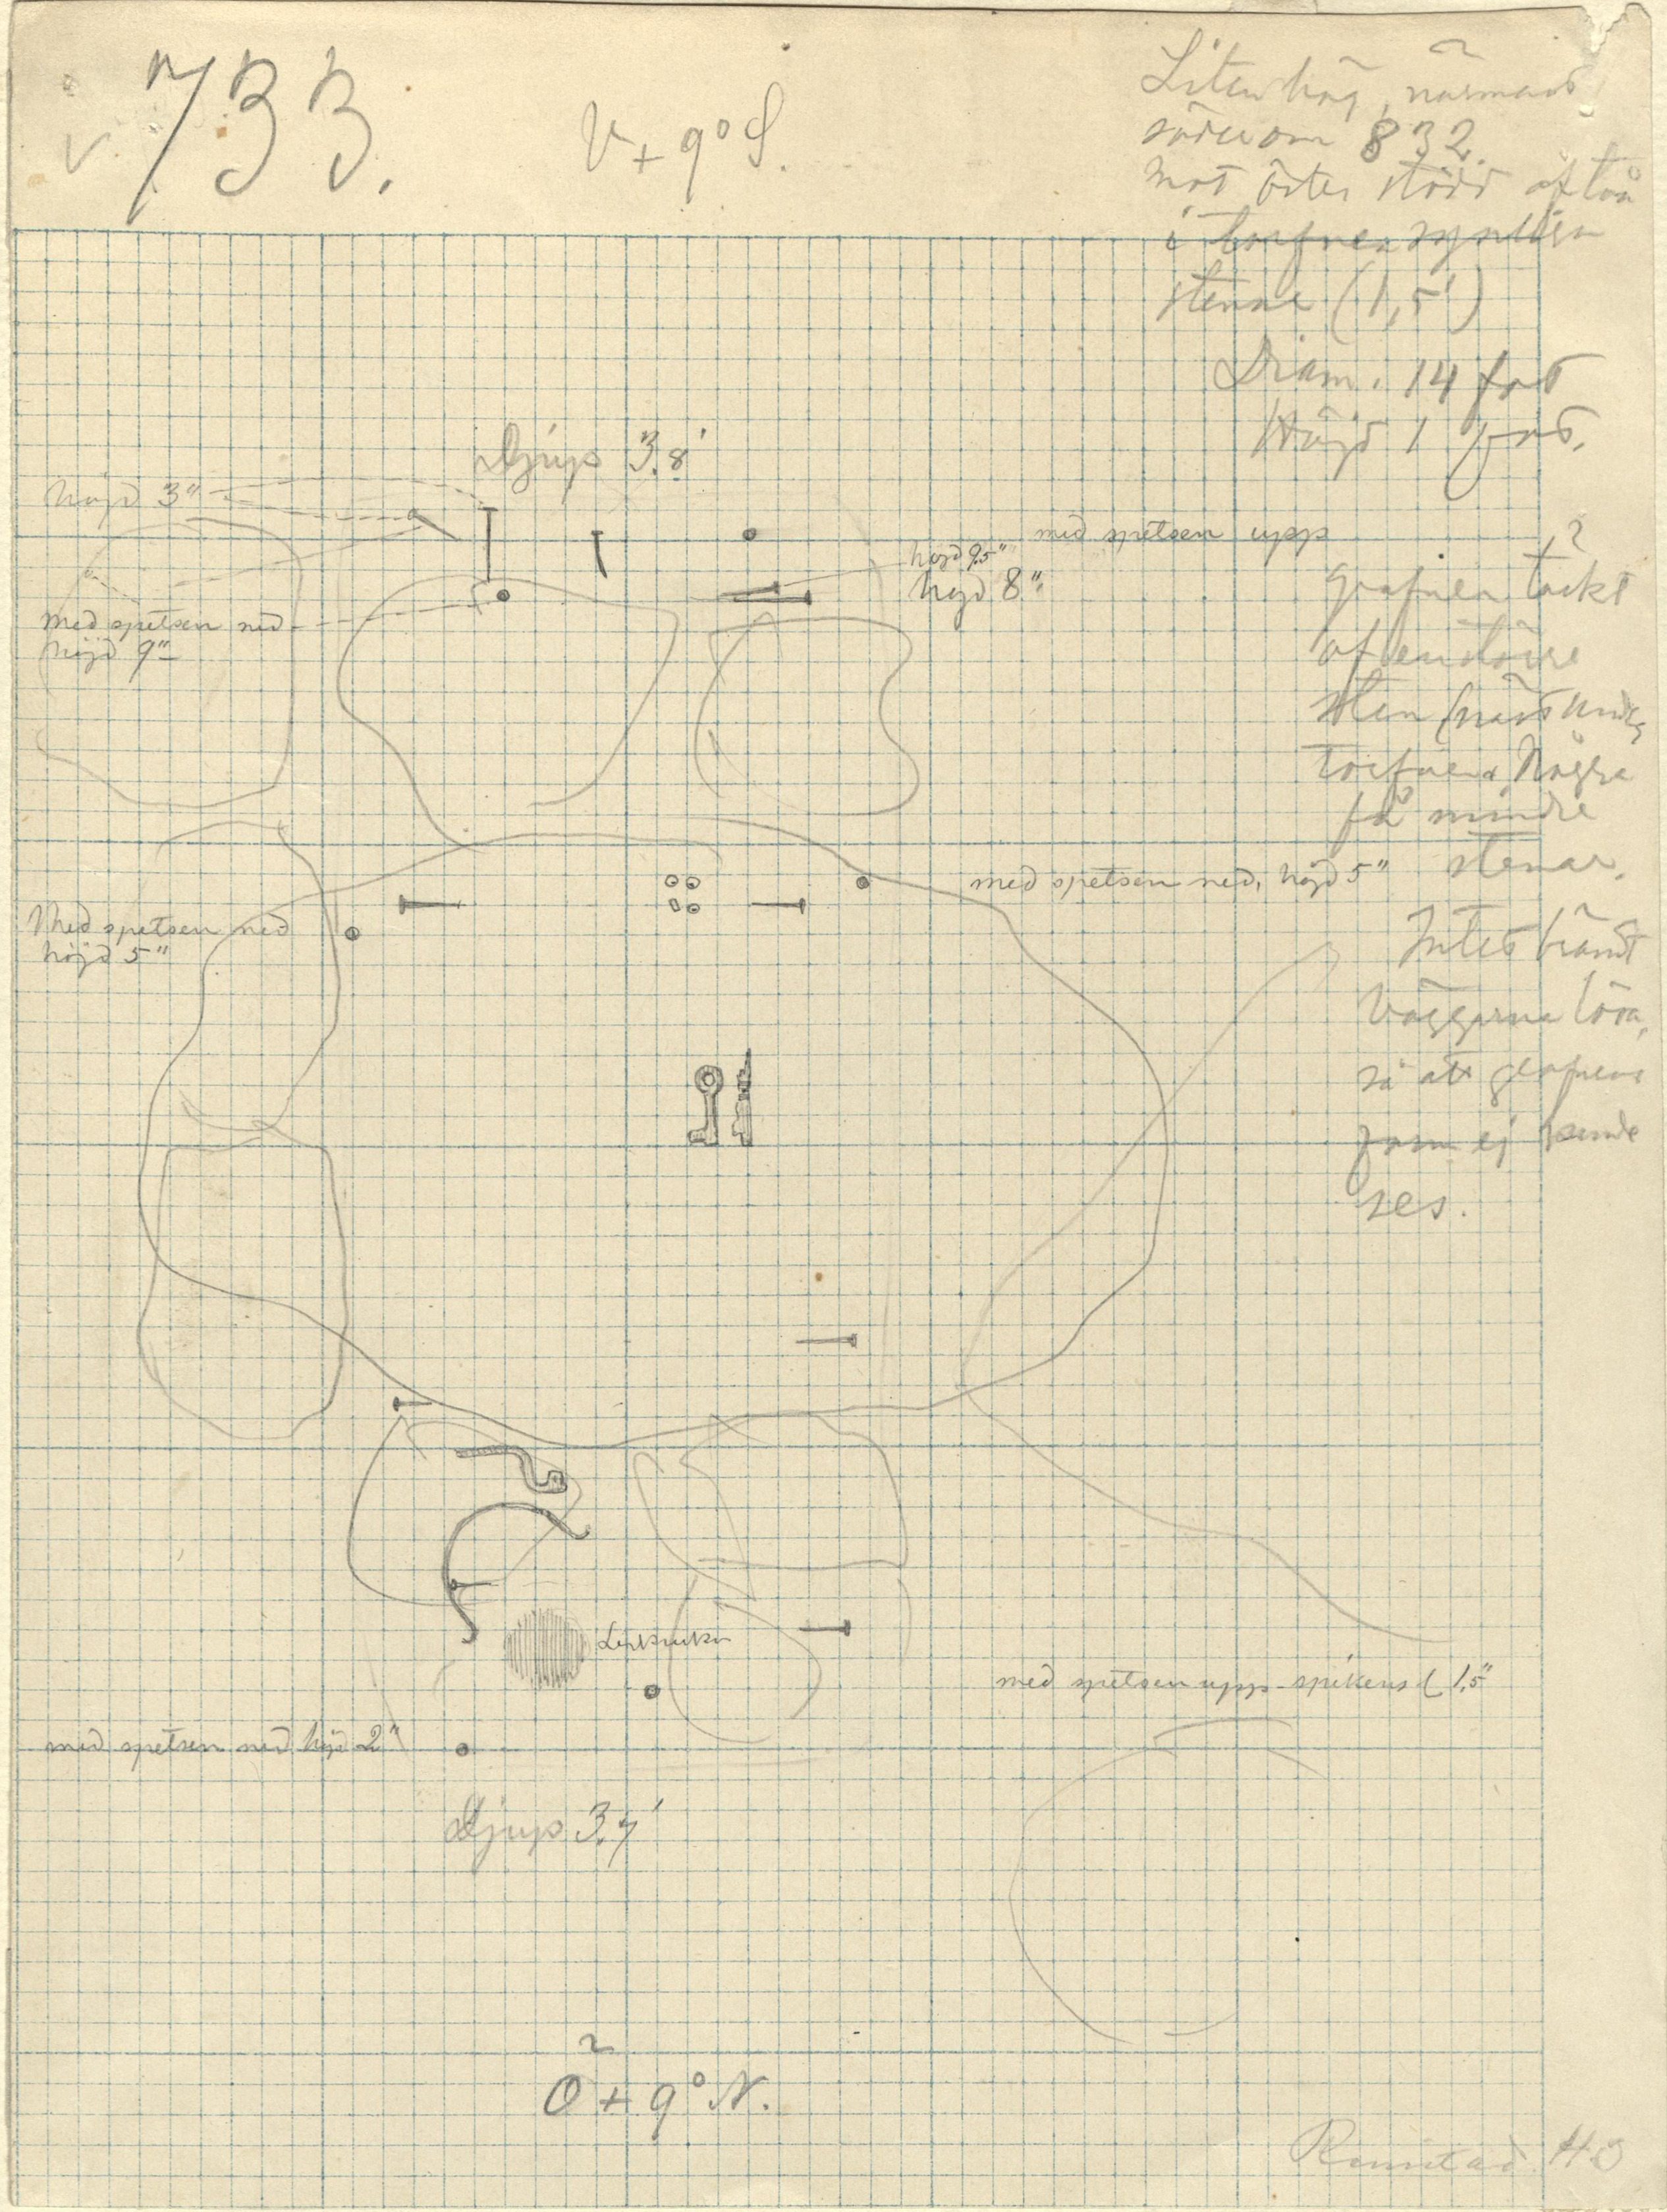 v. 733.
V + 9° S.
Liten hög, närmast
söder om 832.
mot öster stödd af två
i torfven synliga
stenar (1,5')
Diam. 14 fot
Höjd 1 fot.
Djup 3.8'
höjd 3"
med spetsen upp
höjd 9.5"
höjd 8"
med spetsen ned
höjd 9"
grafven täckt
af en större
sten (näst under
torfven. Några
få mindre
stenar.
med spetsen ned, höjd 5"
Med spetsen ned
höjd 5"
Intet brändt
Väggarne lösa,
så att grafvens
form ej kunde
ses.
Lerkruka
med spetsen upp spikens L 1.5"
med spetsen ned höjd 2"
Djup 3.7'
Ö + 9° N.